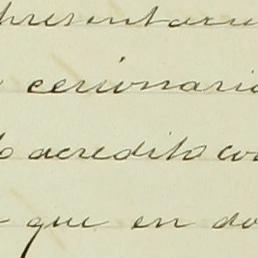 presentaru
cerionari
acredito co
que en do